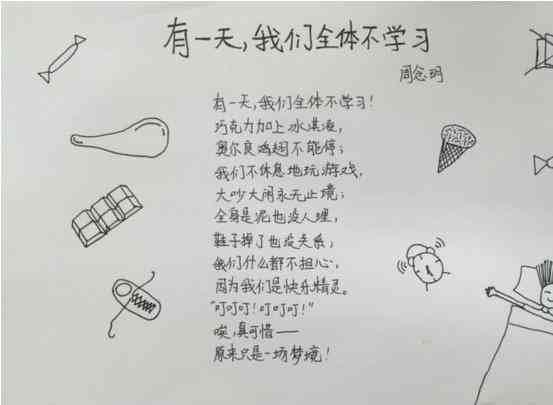 有一天，我们全体不学习
周念玥
有一天，我们全体不学习！
巧克力加上冰淇凌，
奥尔良鸡翅不能停；
我们不休息地玩游戏，
大吵大闹永无止境；
全身是泥也没人理，
鞋子掉了也没关系，
我们什么都不担心，
因为我们是快乐精灵。
“叮叮叮！叮叮叮！”
唉，真可惜——
原来只是一场梦境！